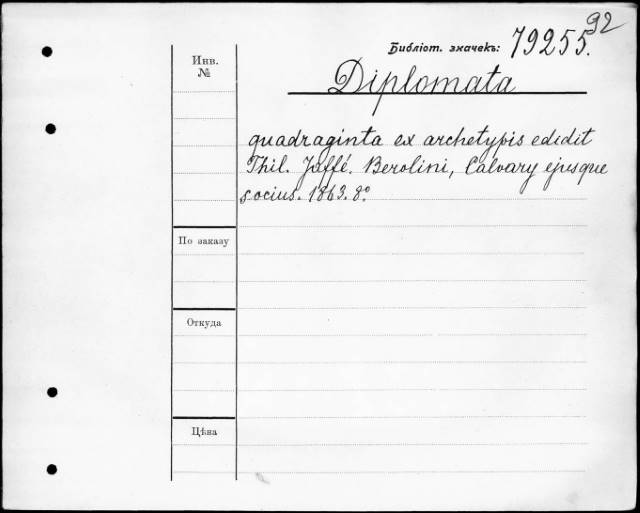 92
Библіот. значекъ: 79255.
Инв.
№
Diplomata
quadraginta ex archetypis edidit
Phil. Jaffé. Berolini, Calvary ejusque
socius. 1863. 8º.
По заказу
Откуда
Цѣна